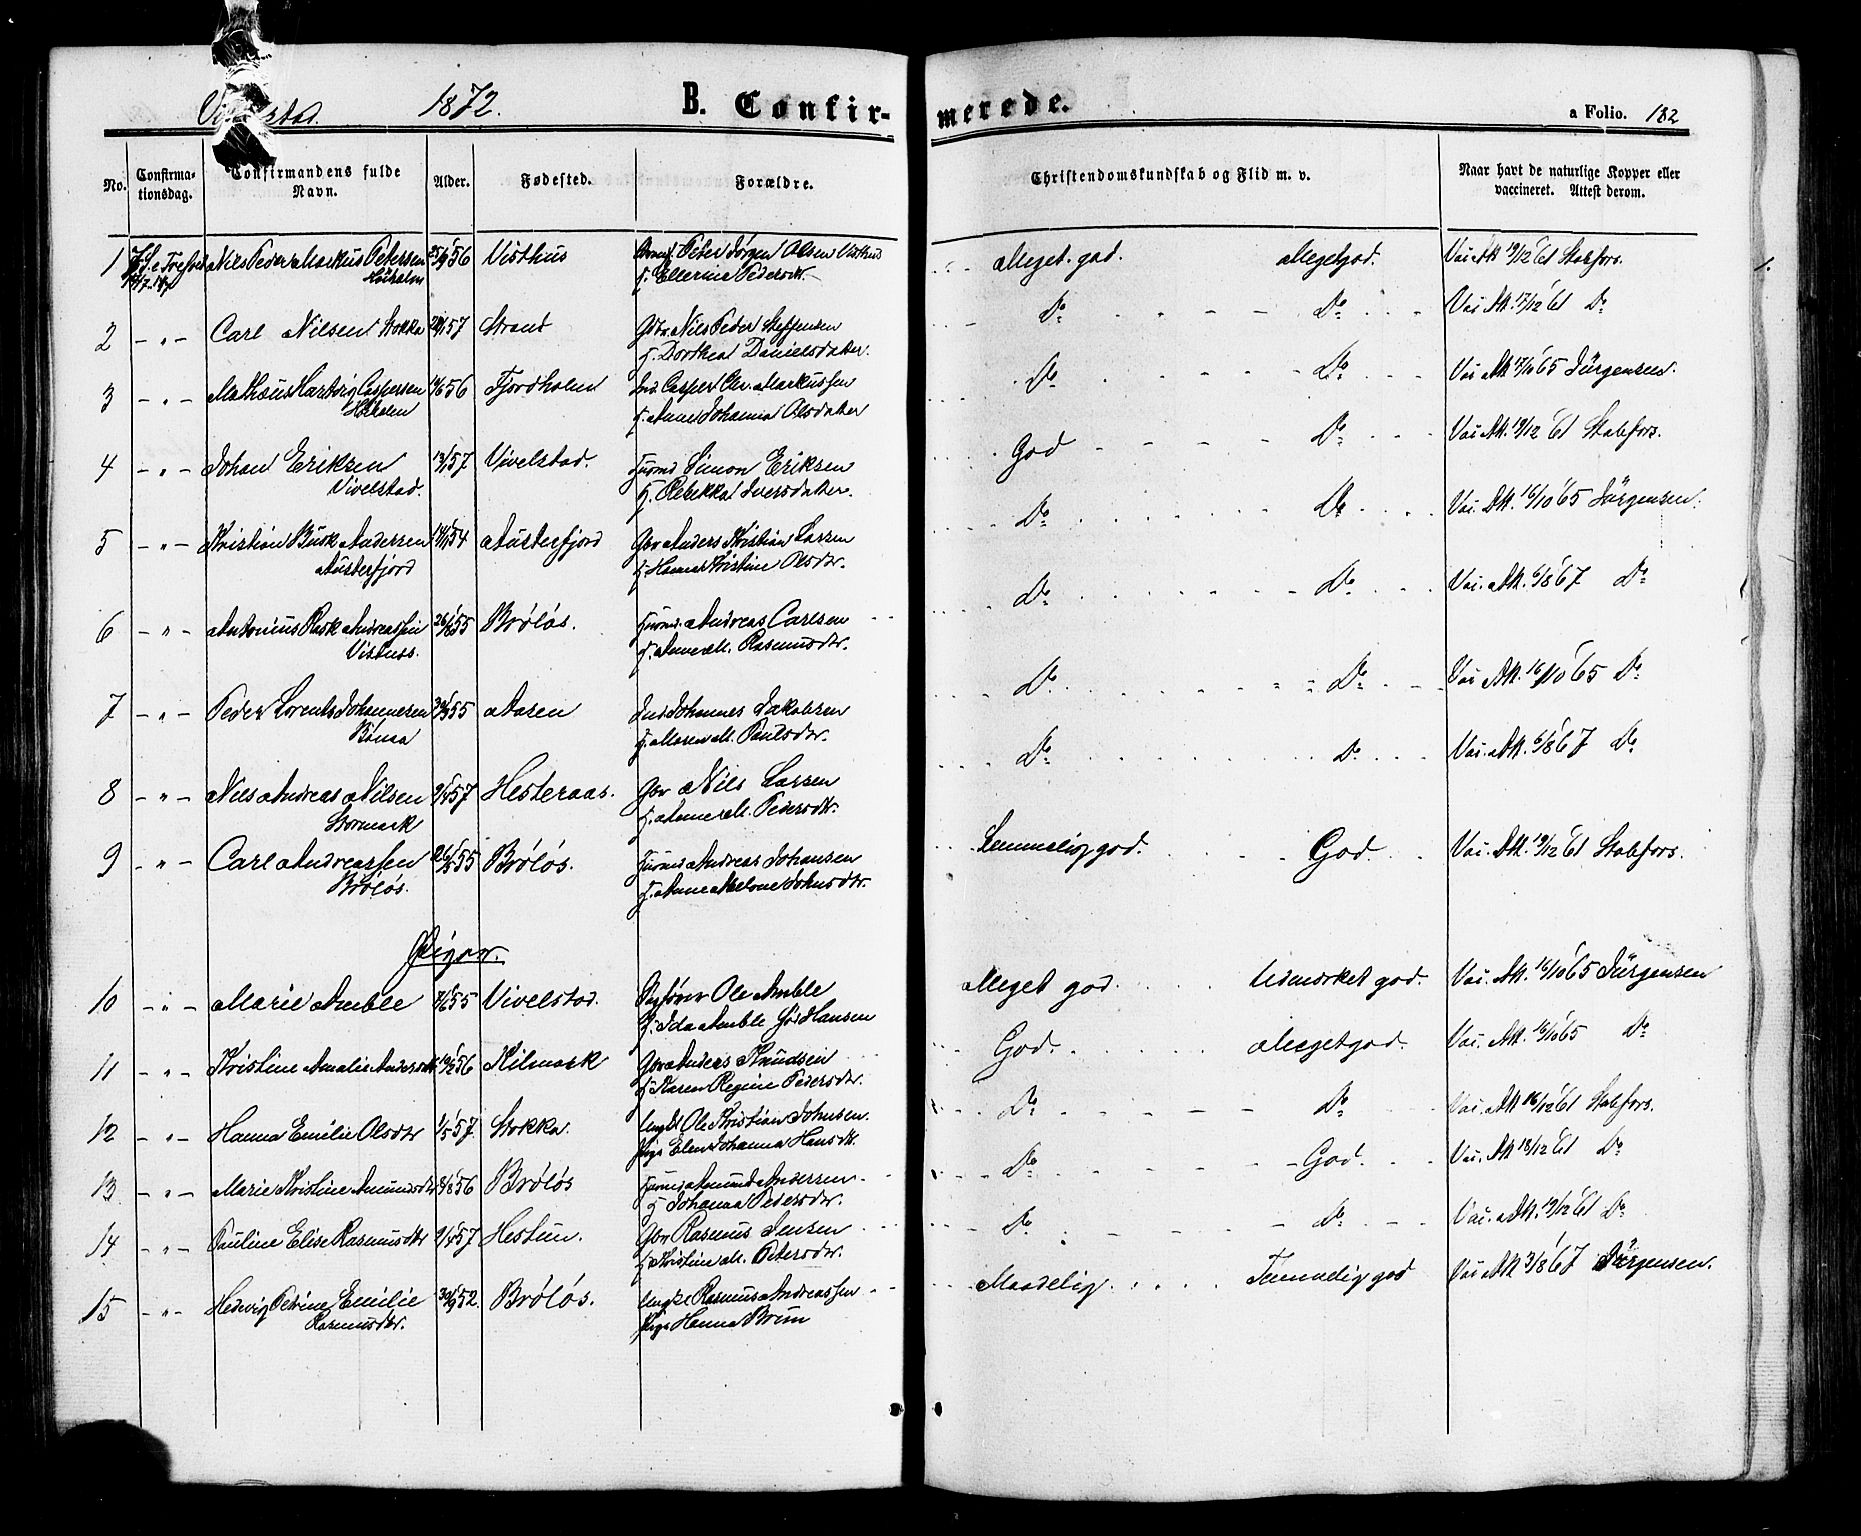 1872.
B. Confir-
merede.
a Folio. 182
No.
Confirma-
tionsdag.
Confirmandens fulde
Navn.
Alder.
Fødested.
Forældre.
Christendomskundskab og Flid m. v.
Naar havt de naturlige Kopper eller
vaccineret. Attest derom.
1 Nils Peder Markus Petersen 56 Visthus Peter Jørgen Olsen Visthus
H. Ellerine Pedersdtr.
Meget god. Meget god. Vac. Att. 19/12 61 Stabfors.
2 – " – Carl Nilsen Stokka 57 Strand Gbr. Nils Peder Steffensen
H. Dorthea Danielsdatter.
Do Do Vac. Att. 17/12 61 Do
3 – " – Mathæus Hartvig Caspersen 56 Fjordholm Ind. Casper Chr. Markussen
H. Anne Johanna Olsdatter
Do Do Vac. Att. 17/10 65 Jürgensen.
4 – " – Johan Eriksen 57 Vivelstad. Husmd. Simon Eriksen
Vivelstad. H. Rebekka Iversdatter.
God Do Vac. Att. 19/12 61 Stabfors.
5 – " – Kristian Buck Andersen 54 Austerfjord Gbr. Anders Kristian Larsen
Austerfjord H. Hanna Kristine Olsdtr.
Do Do Vac. Att. 16/10 65 Jürgensen.
6 – " – Antonius Rask Andreassen 55 Brøløs. Husmd. Andreas Carlsen
Vistnes. H. Anne M. Rasmusdtr.
Do Do Vac. Att. 6/8 67 Do
7 – " – Peder Lorents Johannesen 55 Aasen Ind. Johannes Jakobsen
H. Maren M. Paulsdtr.
Do Do Vac. Att. 16/10 65 Do
8 – " – Nils Andreas Nilsen 9/4 57 Hesteraas. Gbr. Nils Larsen
Stormark H. Anne M. Pedersdtr.
Do Do Vac. Att. 6/8 67 Do
9 – " – Carl Andreassen 55 Brøløs. Husmd. Andreas Johansen
Brøløs. H. Anne Malene Johnsdtr.
Temmelig god. God. Vac. Att. 19/12 61 Stabfors.
Piger.
10 – " – Marie Amble 55 Vivelstad. Ole Amble
H. Ida Amble
Meget god. Udmærket god. Vac. Att. 16/10 65 Jürgensen
11 – " – Kristine Amalie Andersdtr. 56 Kilmark Gbr. Anders Knudsen
H. Karen Regine Pedersdtr.
God. Meget god. Vac. Att. 16/10 65 Do
12 – " – Hanna Emilie Olsdtr 1/5 57. Stokka. Ungk. Ole Kristian Johnsen.
Pige Elen Johanna Hansdtr.
Do Do Vac. Att. 16/12 61 Stabfors.
13 – " – Marie Kristine Amundsdtr 56 Brøløs Husmd. Amund Andersen
H. Johanna Pedersdtr.
Do God. Vac. Att 18/12 61 Do
14 – " – Pauline Elise Rasmusdtr 9/4 57 Hestun. Gbr. Rasmus Jensen
H. Kristine M. Petersdtr.
Do Do Vac. Att. 19/12 61 Do
15 – " – Hedevig Petrine Emilie 52. Brøløs. Ungk. Rasmus Andreassen
Rasmusdtr. Pige Hanna Bruun
Maadelig Temmelig god Vac. Att 3/8 67 Jürgensen.